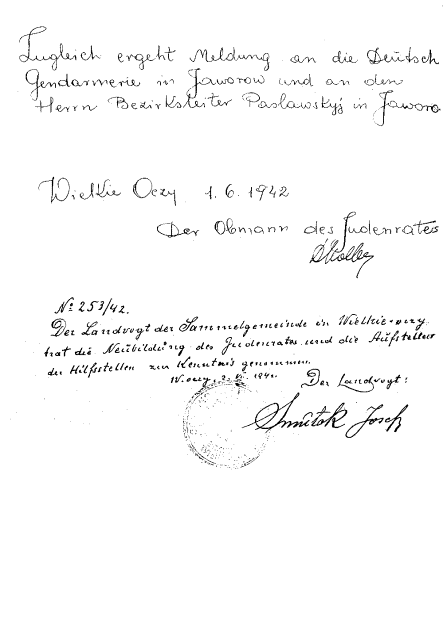 Zugleich ergeht Meldung an die Deutsch
Gendarmerie in Jaworow und an den
Herrn Bezirksleiter Paslawskyj in Jaworo
Wielkie Oczy 1.6.1942
Der Obmann des Judenrates
No 253/42.
Der Landvogt der Sammelgemeinde in Wielkie-oczy
hat die Neubildung des Judenrates und die Aufstellun
der Hilfsstellen zur Kenntnis genommen.
W. oczy, 2. VI. 194
Der Landvogt:
Josef